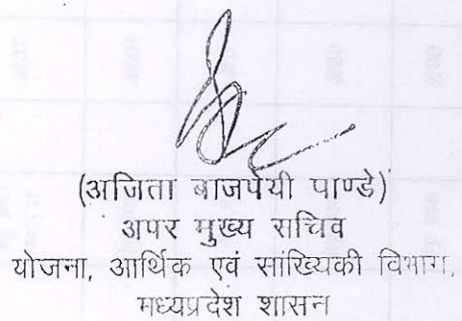 (अजिता बाजपेयी पाण्डे)
अपर मुख्य सचिव
योजना, आर्थिक एवं सांख्यिकी विभाग,
मध्यप्रदेश शासन